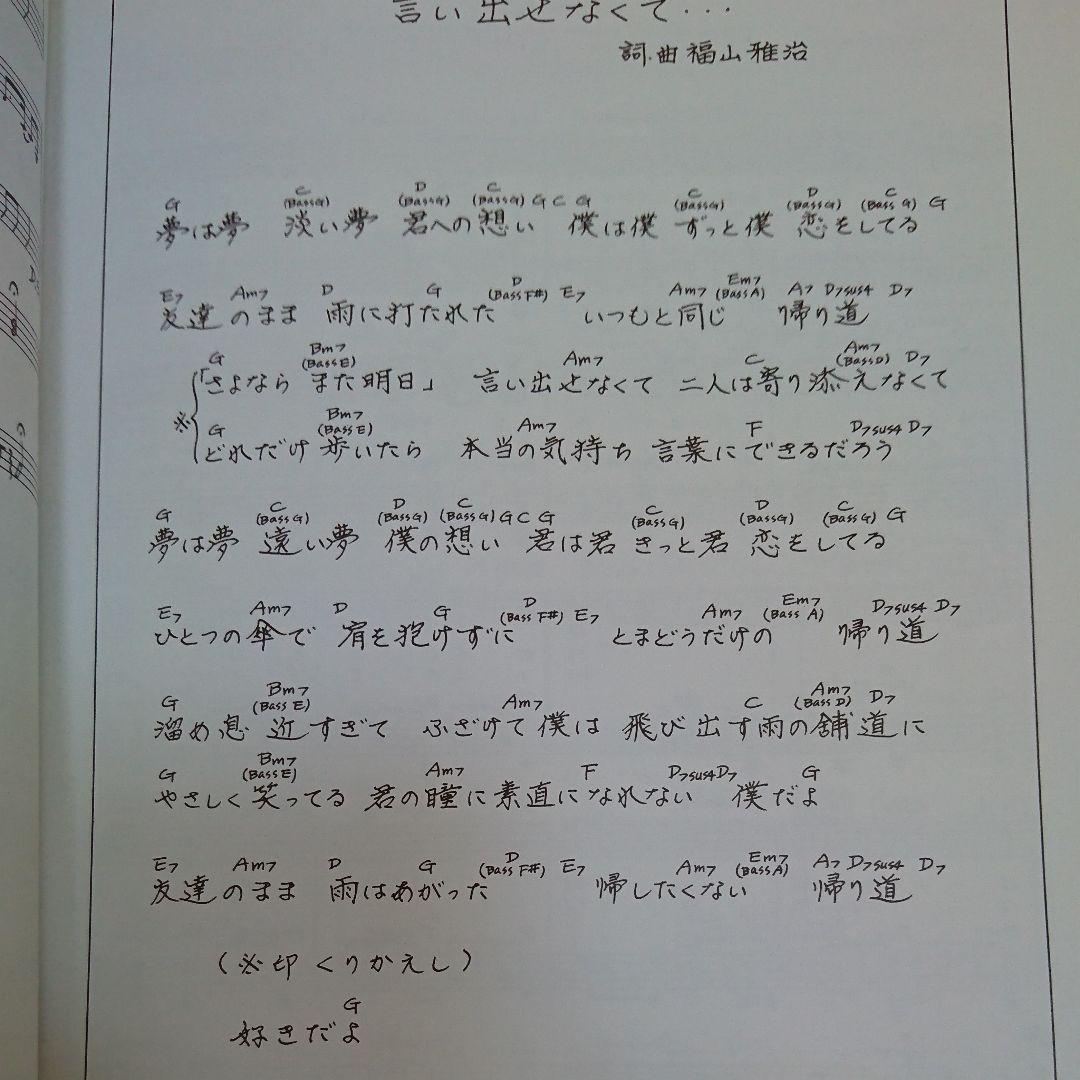 言い出せなくて・・・
詞.曲 福山雅治
G C (BassG) D (BassG) C (BassG) G C G C (BassG) D (BassG) C (Bass G) G
夢は夢 淡い夢 君への想い 僕は僕 ずっと僕 恋をしてる
E7 Am7 D G D (Bass F#) E7 Am7 Em7 (BassA) A7 D7sus4 D7
友達のまま 雨に打たれた いつもと同じ 帰り道
G Bm7 (BassE) Am7 C Am7 (BassD) D7
※「さよなら また明日」 言い出せなくて 二人は寄り添えなくて
G Bm7 (Bass E) Am7 F D7sus4 D7
どれだけ歩いたら 本当の気持ち 言葉にできるだろう
G C (BassG) D (BassG) C (BassG) G C G C (BassG) D (BassG) C (BassG) G
夢は夢 遠い夢 僕の想い 君は君 きっと君 恋をしてる
E7 Am7 D G D (Bass F#) E7 Am7 Em7 (Bass A) D7sus4 D7
ひとつの傘で 肩を抱けずに とまどうだけの 帰り道
G Bm7 (Bass E) Am7 C Am7 (BassD) D7
溜め息 近すぎて ふざけて僕は 飛び出す雨の舗道に
G Bm7 (BassE) Am7 F D7sus4 D7 G
やさしく笑ってる 君の瞳に素直になれない 僕だよ
E7 Am7 D G D (Bass F#) E7 Am7 Em7 (BassA) A7 D7sus4 D7
友達のまま 雨はあがった 帰したくない 帰り道
(※印 くりかえし)
G
好きだよ